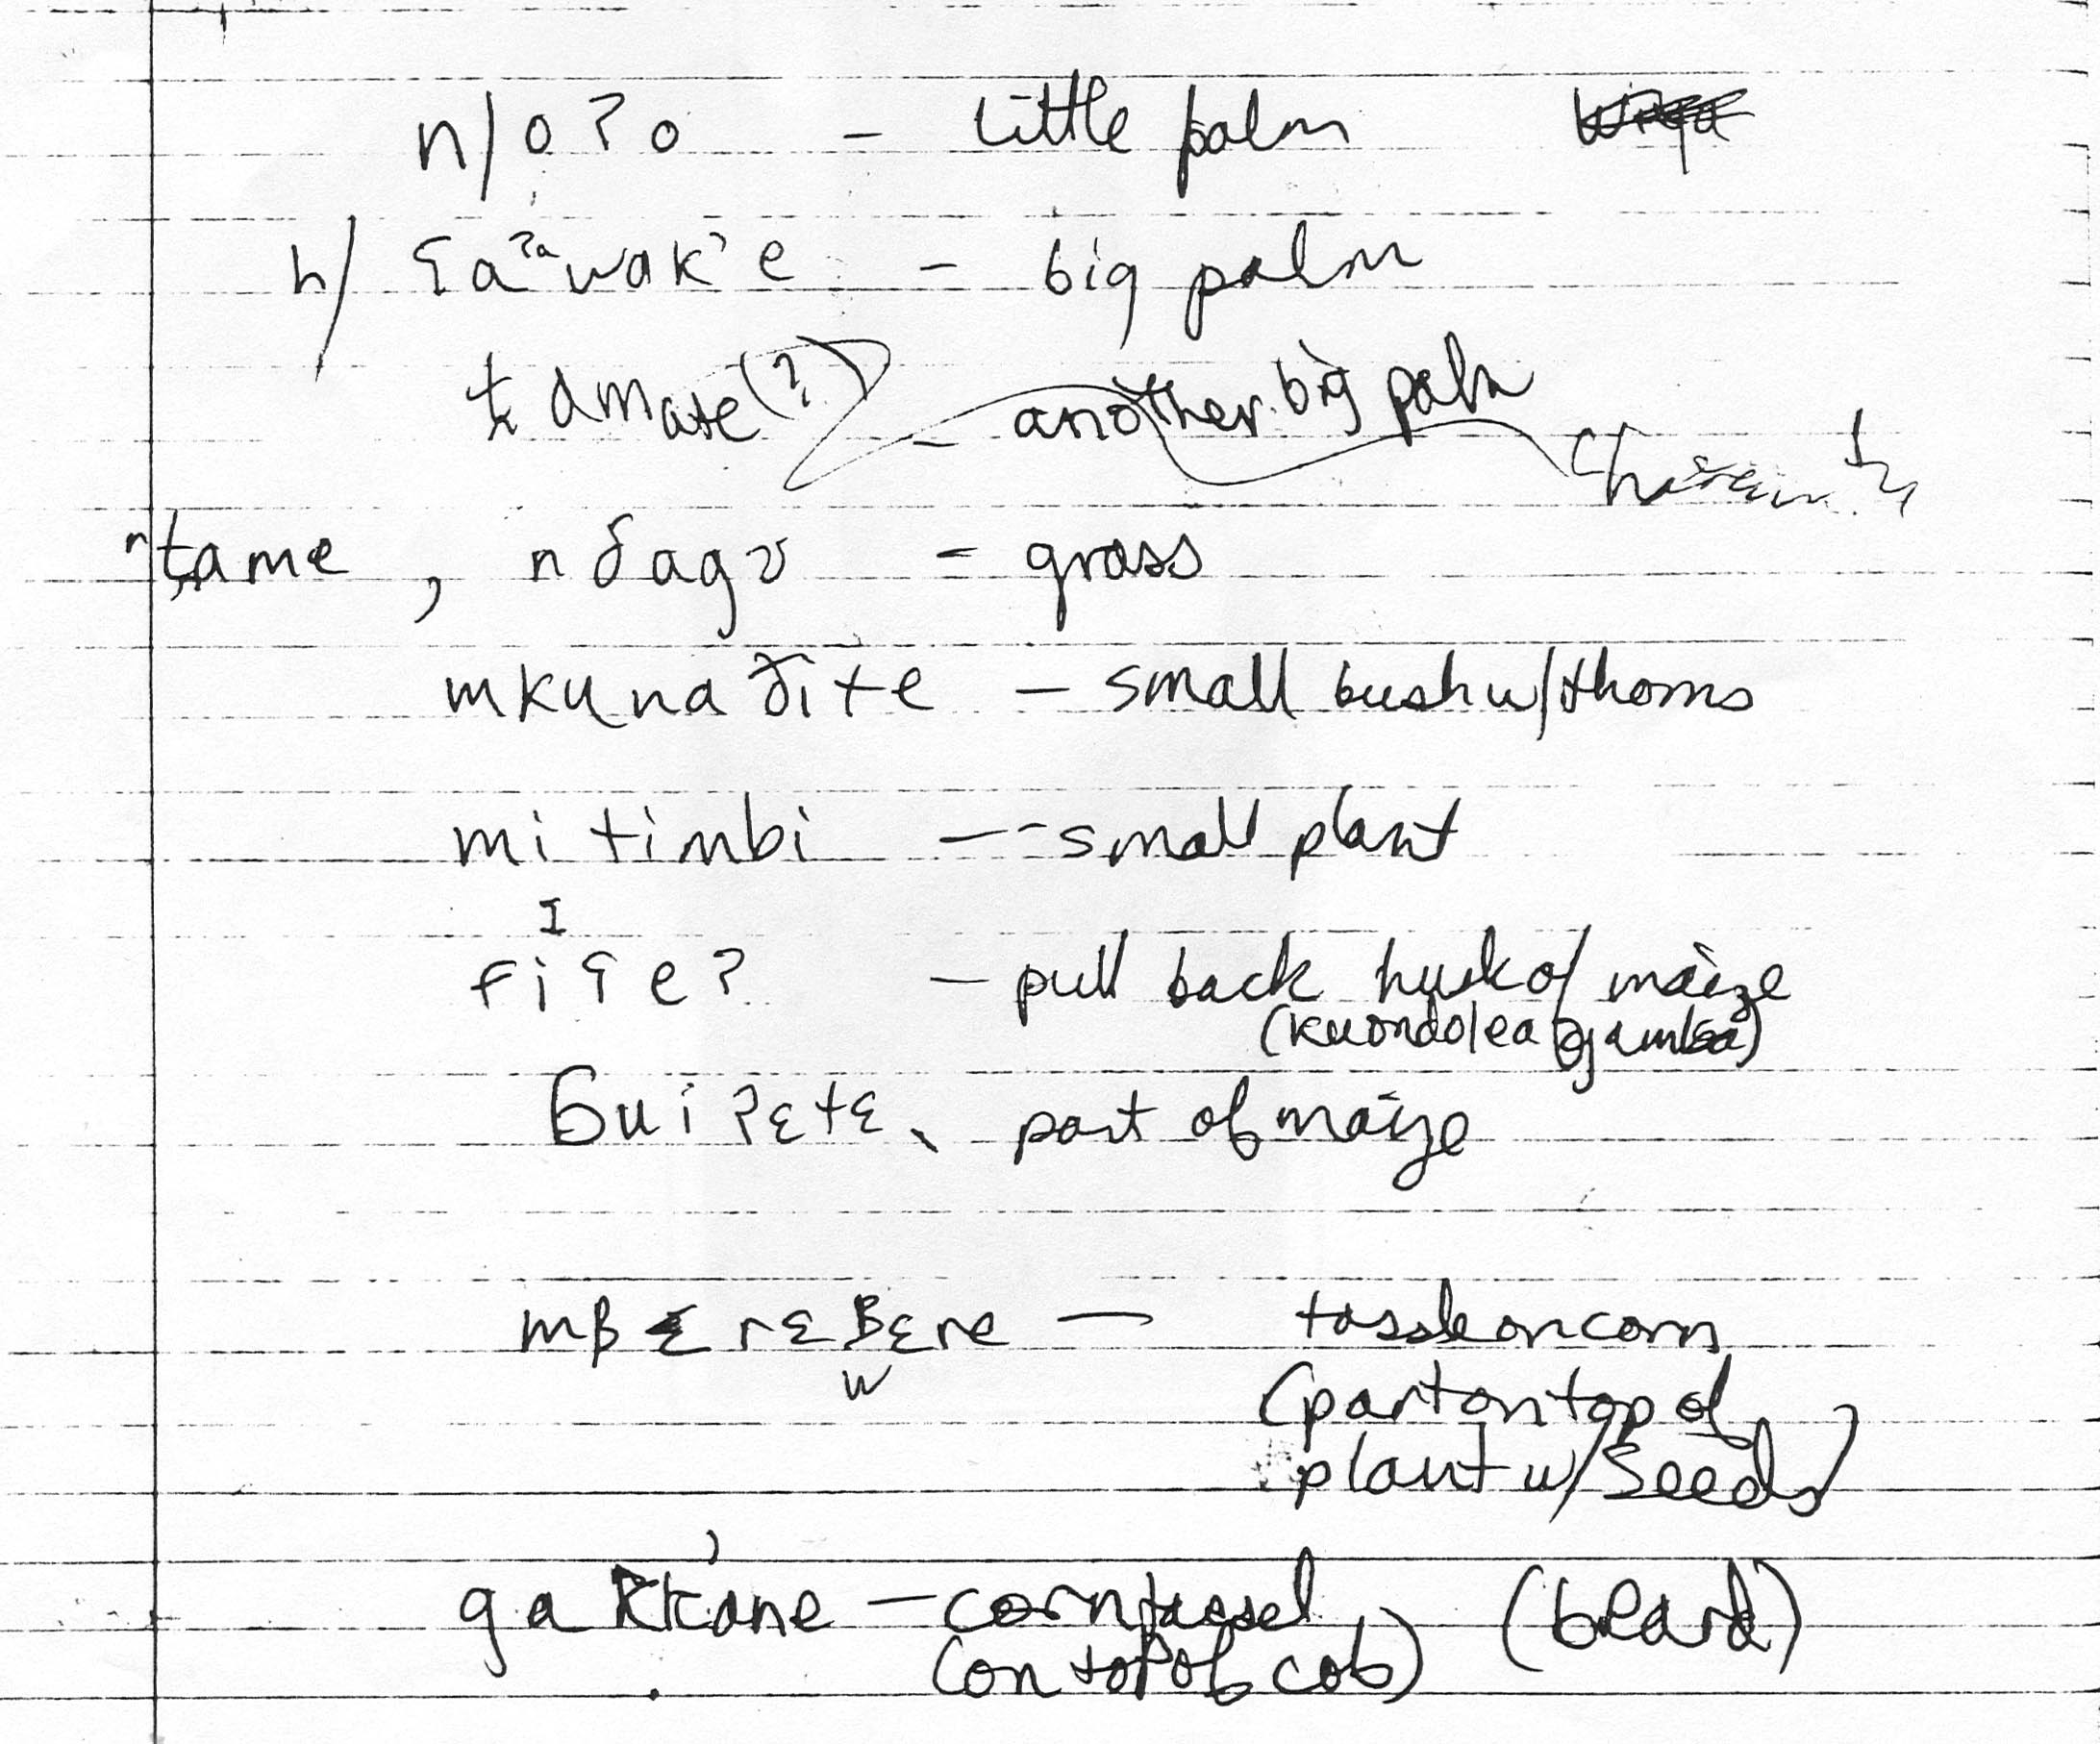 n/oʔo – little palm
h/ ʕaʔᵃwak'e – big palm
t̪amate(?) – another big palm
ⁿt̪ame, nðagʊ = grass
mkunaðite – small bush w/thorns
mitimbi – small plant
I
fiʕeʔ – pull back husk of maize
(kuondolea
ɓuiʔɛtɛ, part of maize
mβɛrɛβɛre – tassle on corn
w
(part on top of
plant w/seeds)
gakk'ane – corn tassel (beard)
(on top of cob)